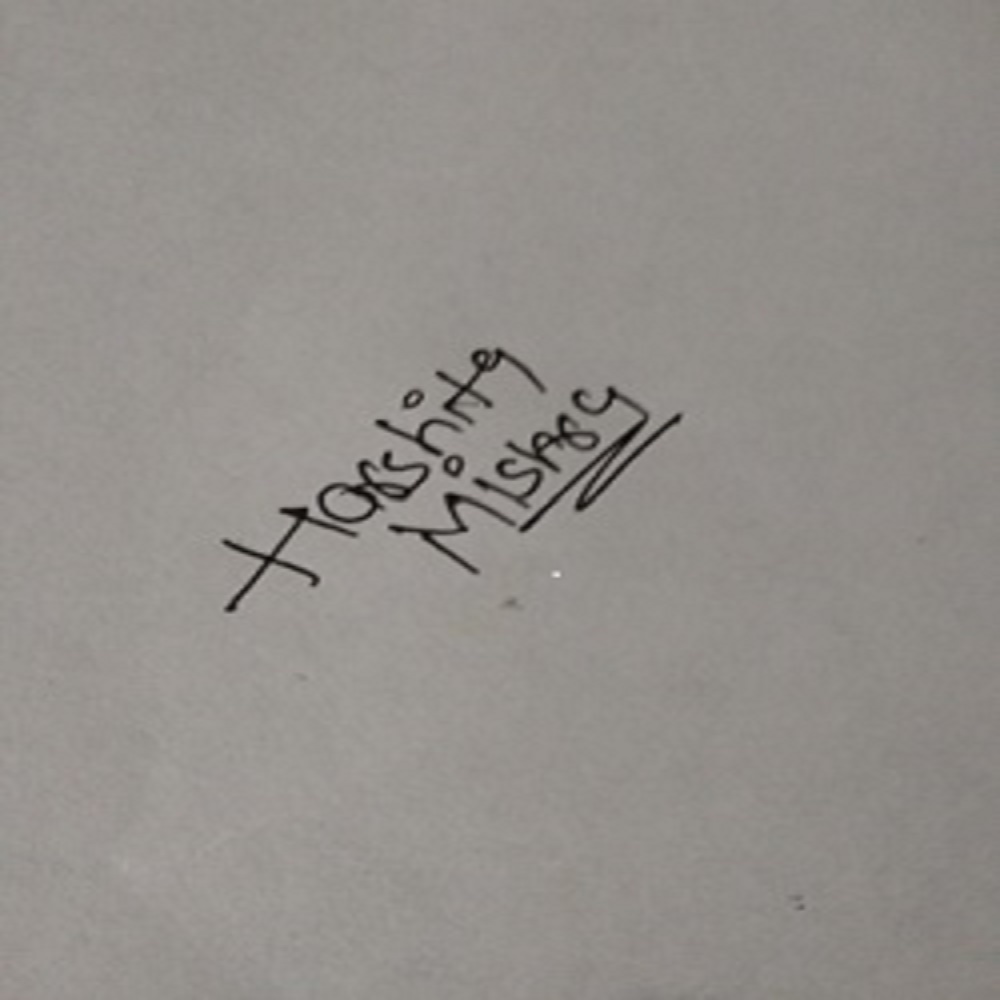 Harshita
Mistary